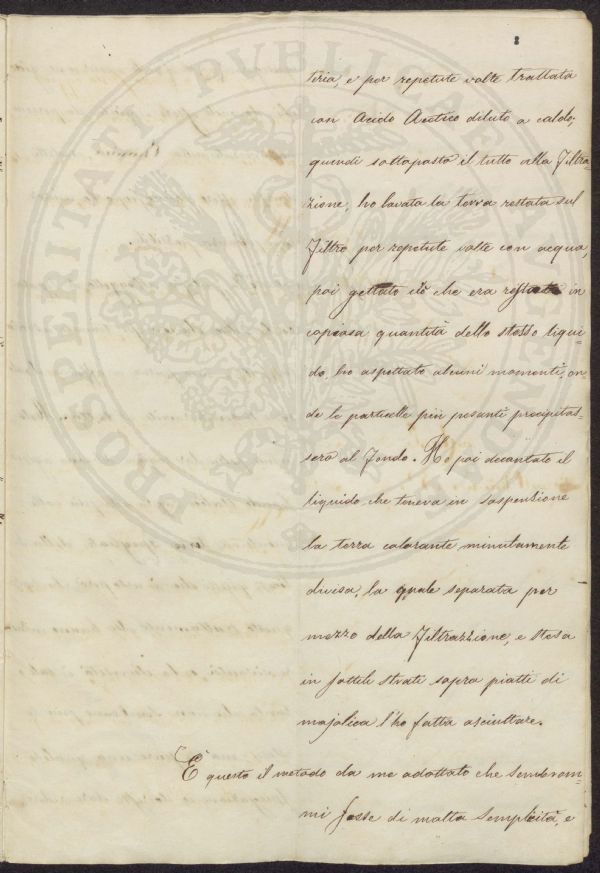 8
teria, e per repetute volte trattata
con Acido Acetico diluto a caldo,
quindi sottoposto il tutto alla Filtra-
zione, ho lavata la terra restata sul
Filtro per repetute volte con acqua,
poi gettato ciò che era restato in
copiosa quantità dello stesso liqui
do, ho aspettato alcuni momenti, on-
de le particelle più pesanti precipitas-
sero al Fondo. Ho poi decantato il
liquido che teneva in sospensione
la terra colorante minutamente
divisa, la quale separata per
mezzo della Filtrazione, e stesa
in sottili strati sopra piatti di
majolica l'ho fatta asciuttare.
È questo il metodo da me adottato che sembrom-
mi fosse di molta semplicità, e
PROSPERITATI PVBLICAE AVGENDAE